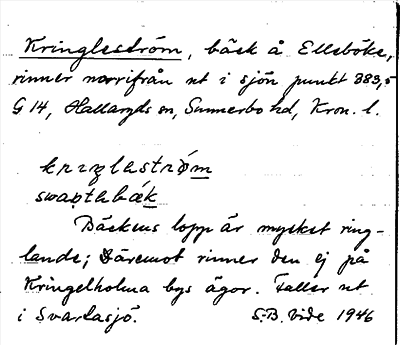 Kringleström, bäck å Ellsböke,
rinner norrifrån ut i sjön punkt 383,5
G 14, Hallaryds sn, Sunnerbo hd, Kron. l.
krɪŋləstrǿm
swaʈəbǽk
Bäckens lopp är mycket ring-
lande; Däremot rinner den ej på
Kringelholma bys ägor. Faller ut
i Svartasjö. S.B. Vide 1946